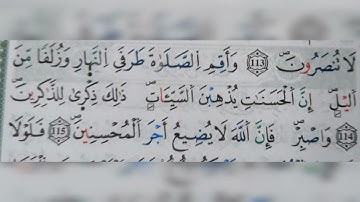 لَا تُنصَرُونَ ۝113 وَأَقِمِ الصَّلَوٰةَ طَرَفَيِ النَّهَارِ وَزُلَفًا مِّنَ
الَيْلِ إِنَّ الْحَسَنَٰتِ يُذْهِبْنَ السَّيِّـَٔاتِ ذَٰلِكَ ذِكْرَىٰ لِلذَّٰكِرِينَ
۝114 وَاصْبِرْ فَإِنَّ اللَّهَ لَا يُضِيعُ أَجْرَ الْمُحْسِنِينَ ۝115 فَلَوْلَا